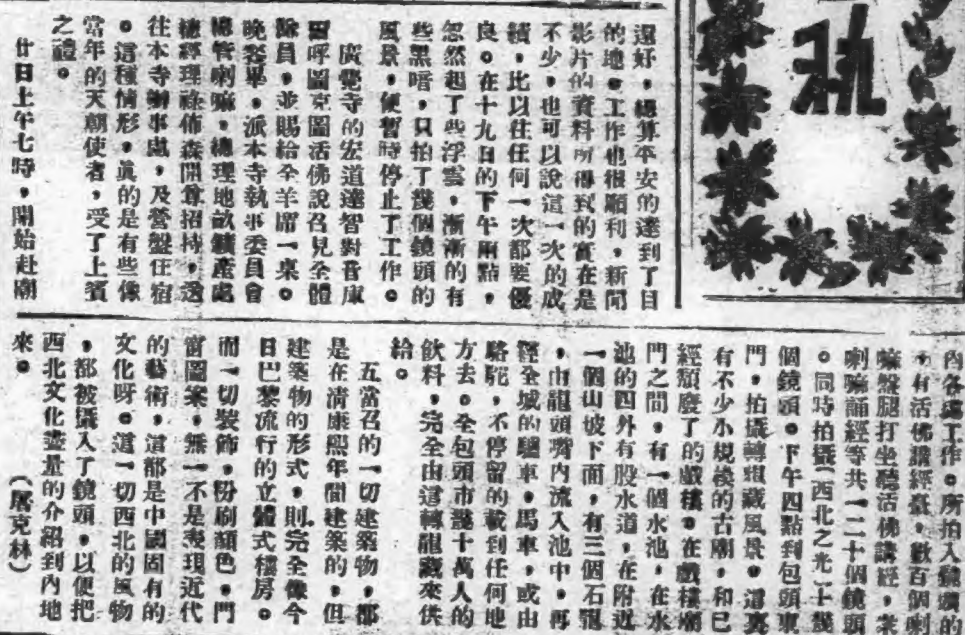 還好,總算平安的達到了目
的地。工作也很順利,新聞
影片的資料所得到的實在是
不少,也可以說這一次的成
績,比以往任何一次都要優
良。在十九日的下午兩點,
忽然起了些浮雲,漸漸的有
些黑暗,只拍了幾個鏡頭的
風景,便暫時停止了工作。
廣覺寺的宏道達智對音庫
爾呼圖克圖活佛說召見全體
隊員,並賜給全羊席一桌。
晚餐畢,派本寺執事委員會
總管喇嘛,總理地畝鑛產處
總經理祿佈森開尊招待,送
往本寺辦事處,及營盤住宿
。這種情形,眞的是有些像
當年的天朝使者,受了上賓
之禮。
廿日上午七時,開始赴廟
內各處工作。所拍入鏡頭的
,有活佛講經臺,數百個喇
嘛盤腿打坐聽活佛講經,衆
喇嘛誦經等共一二十個鏡頭
。同時拍攝(西北之光)十幾
個鏡頭。下午四點到包頭東
門,拍攝轉龍藏風景。這裏
有不少小規模的古廟,和已
經頹廢了的戲樓。在戲樓廟
門之間,有一個水池,在水
池的四外有股水道,在附近
一個山坡下面,有三個石龍
,由龍頭嘴內流入池中。再
經全城的驢車,馬車,或由
駱駝,不停留的載到任何地
方去。全包頭市幾十萬人的
飲料,完全由這轉龍藏來供
給。
五當召的一切建築物,都
是在清康熙年間建築的,但
建築物的形式,則完全像今
日巴黎流行的立體式樓房。
而一切裝飾,粉刷顏色,門
窗圖案,無一不是表現近代
的藝術,這都是中國固有的
文化呀。這一切西北的風物
,都被攝入了鏡頭,以便把
西北文化盡量的介紹到內地
來。
(屠克林)